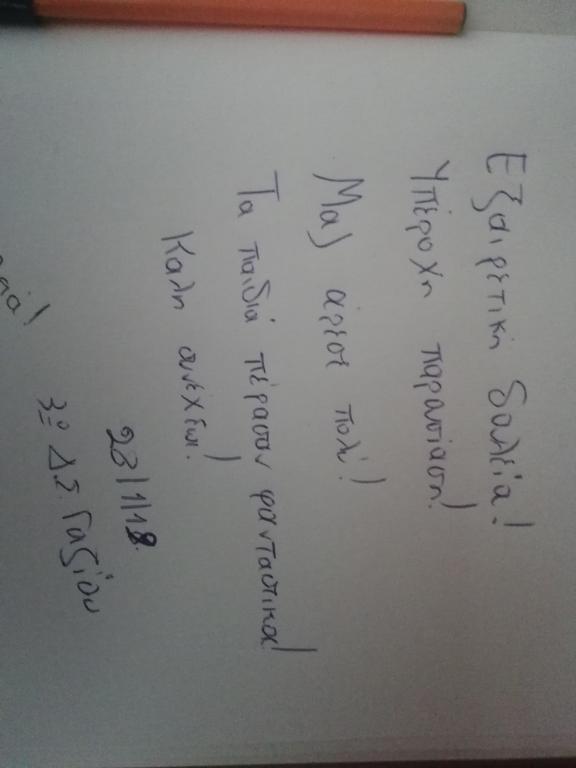 Εξαιρετική δουλεία!
Υπέροχη παράσταση!
Μας άρεσε πολύ!
Τα παιδιά πέρασαν φανταστικά!
Καλή συνέχεια!
23/1/18
3º Δ.Σ. Γαζίου